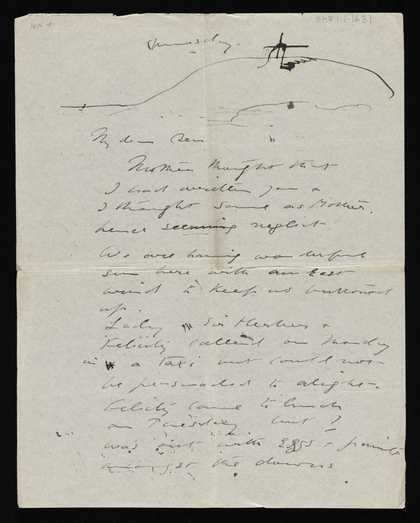 Thursday.
My dear Ben
Mother thought that
I had written you &
I thought same as Mother,
hence seeming neglect
We are having wonderful
sun here with an East
wind to keep us buttoned
up.
Lady Sir Herbert &
Felicity called on Monday
in a Taxi but could not
be persuaded to alight.
Felicity came to lunch
on Tuesday but I
was out with Eggs &
the downs